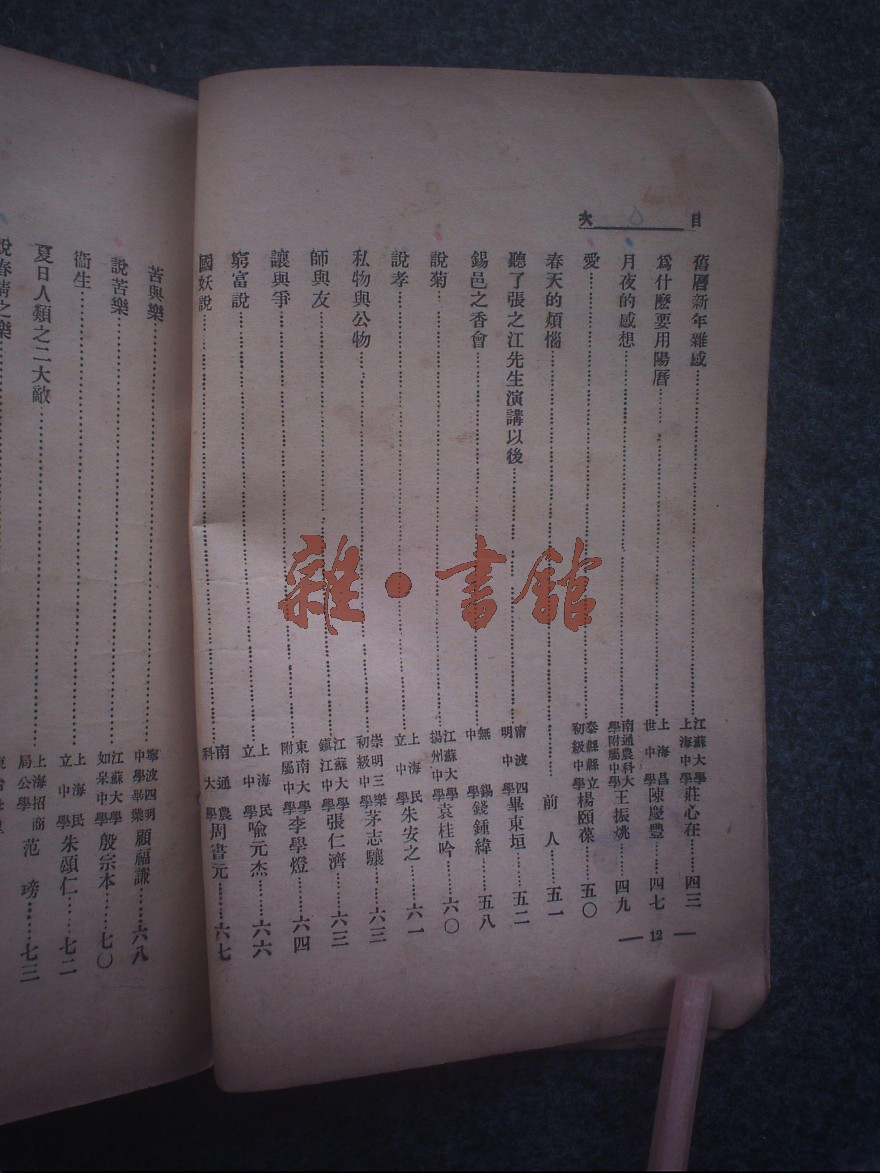 目次
舊曆新年雜感……江蘇大學上海中學莊心在……四三
爲什麽要用陽曆……上海昌世中學陳慶豐……四七
月夜的感想……南通農科大學附屬中學王振姚……四九
愛……泰縣縣立初級中學楊頤葆……五〇
春天的煩惱……前人……五一
聽了張之江先生演講以後……甯波四明中學畢東垣……五二
錫邑之香會……無錫中學錢鍾緯……五八
說菊……江蘇大學揚州中學袁桂吟……六〇
說孝……上海民立中學朱安之……六一
私物與公物……崇明三樂初級中學茅志驤……六三
師與友……江蘇大學鎮江中學張仁濟……六三
讓與爭……東南大學附屬中學李學燈……六四
窮富說……上海民立中學喻元杰……六六
國妖說……南通農科大學周書元……六七
12
苦與樂……寧波四明中學畢業顧福謙……六八
說苦樂……江蘇大學如皋中學殷宗本……七〇
衞生……上海民立中學朱頌仁……七二
夏日人類之二大敵……上海招商局公學范 塝……七三
說春晴之樂
雜·書館